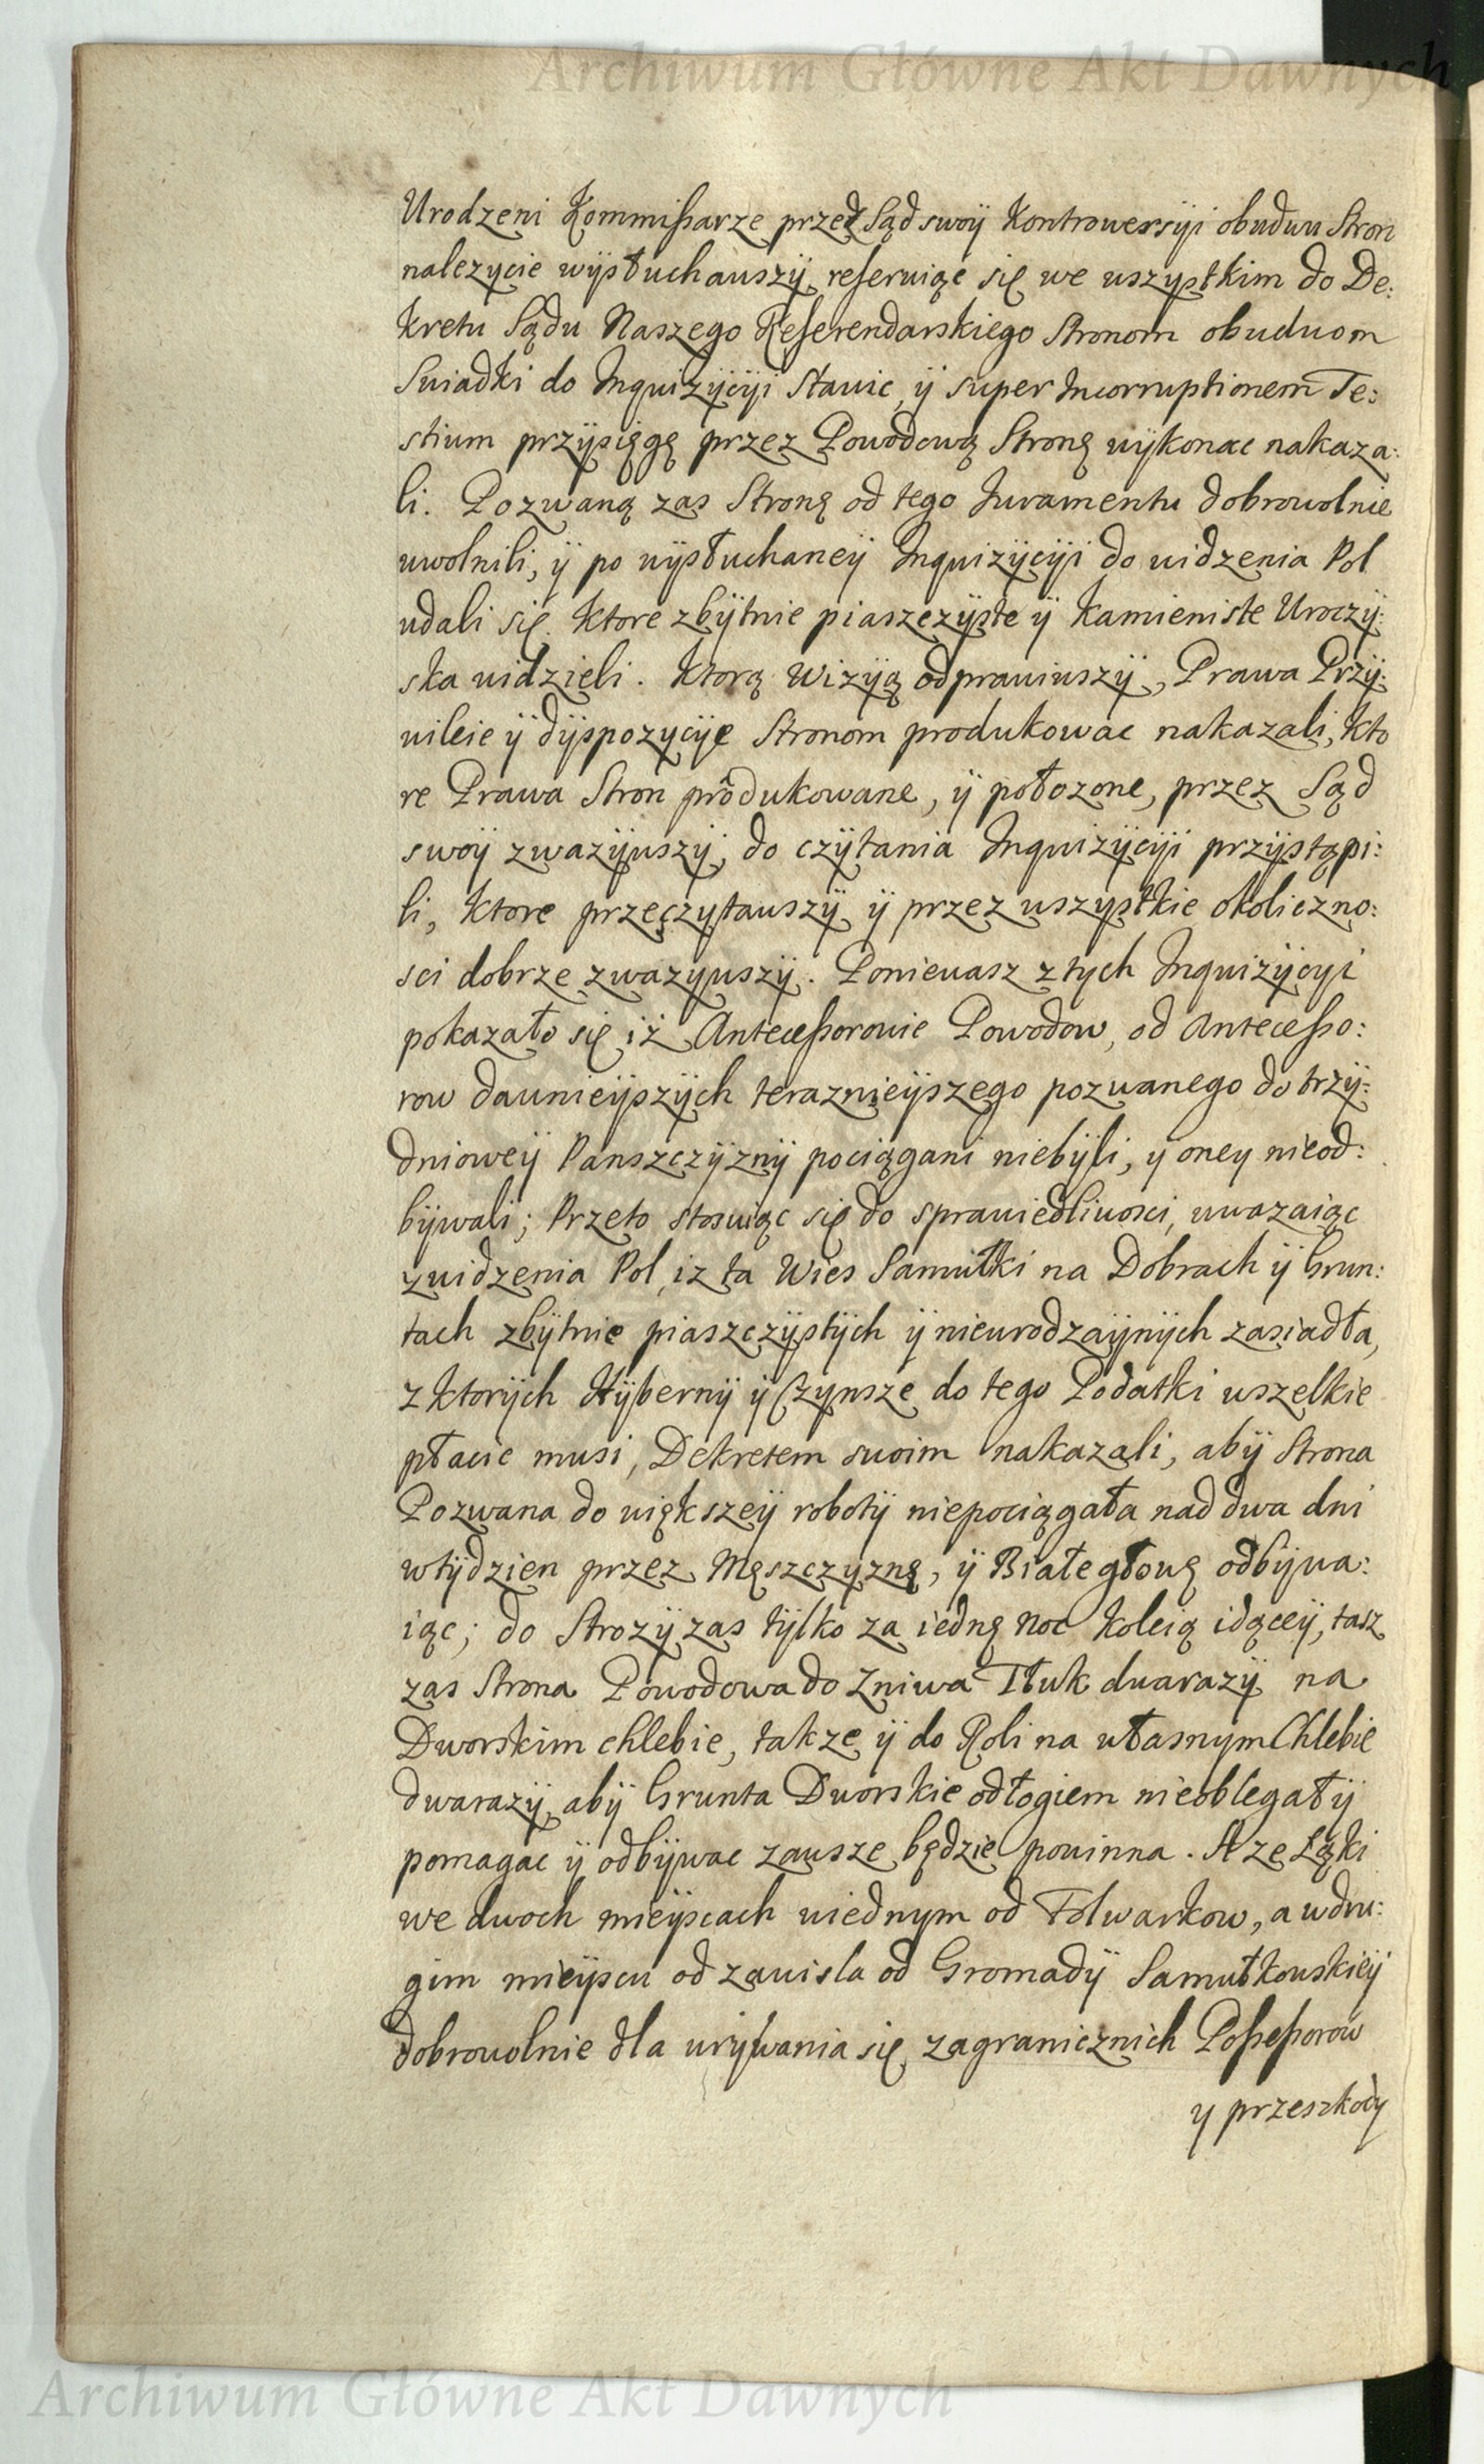 Archiwum Główne Akt Dawnych
Urodzeni Kommißarze przed Sąd swoÿ Kontrowersÿi obudwu Stron
nalezycie wÿsłuchauszÿ, referuiąc się we uszÿstkim do De:
kretu Sądu Naszego Referendarskiego Stronom obuduom
Suiadki do Inquizÿcÿi stauic, ÿ super Incorruptionem Te:
stium przÿsięgę przez Powodową Stronę uÿkonac nakaza:
li. Pozwaną zas Stronę od tego Juramentu dobrowolnie
uwolnili, ÿ po uÿsłuchaneÿ Inquizÿcÿi do uidzenia Pol
udali się. Ktore zbÿtnie piaszczÿste ÿ kamieniste Uroczÿ:
ska uidzieli. Ktorą Wizÿą odprauiuszÿ, Prawa Przÿ:
uileie ÿ dÿspozycÿe Stronom produkowac nakazali, kto
re Prawa Stron produkowane, ÿ położone, przez Sąd
swoÿ zwazÿuszÿ, do czÿtania Inquizÿcÿi przÿstąpi:
li, ktore przeczytauszÿ ÿ przez uszystkie okoliczno:
sci dobrze zwazyuszÿ. Ponieuasz z tych Inquizÿcyi
pokazało się iż Anteceßorouie Powodow, od Anteceßo:
row daunieÿszÿch teraznieÿszego pozuanego do trzÿ:
dnioweÿ Panszczÿznÿ pociągani niebÿli, y oney nieod:
bÿwali; Przeto stosuiąc się do sprauiedliuosci, uwazaiąc
z uidzenia Pol, iz ta Wies Samułki na Dobrach ÿ Grun:
tach zbÿtnie piaszczÿstÿch ÿ nieurodzaÿnÿch zasiadła,
z ktorÿch Hÿbernÿ ÿ Czynsze do tego Podatki uszelkie
płacic musi, Dekretem suoim nakazali, abÿ Strona
Pozwana do uiększeÿ robotÿ niepociągała nad dwa dni
w tÿdzien przez Męszczyznę, ÿ Białegłouę odbÿwa:
iąc; do Strozÿ zas tÿlko za iednę noc koleią idąceÿ, tasz
zas Strona Powodowa do Zniwa Tłuk duarazÿ na
Dworskim chlebie, takze ÿ do Roli na ułasnym Chlebie
dwarazÿ, abÿ Grunta Dworskie odłogiem nieoblegałÿ
pomagac ÿ odbÿwac zausze będzie pouinna. A ze Łąki
we dwoch mieÿscach uiednym od Folwarkow, a wdru:
gim mieÿscu od zauisla od Gromadÿ Samułkouskieÿ
dobrouolnie dla urÿwania się zagranicznich Poßeßorow
y przeszkody
Archiwum Główne Akt Dawnych